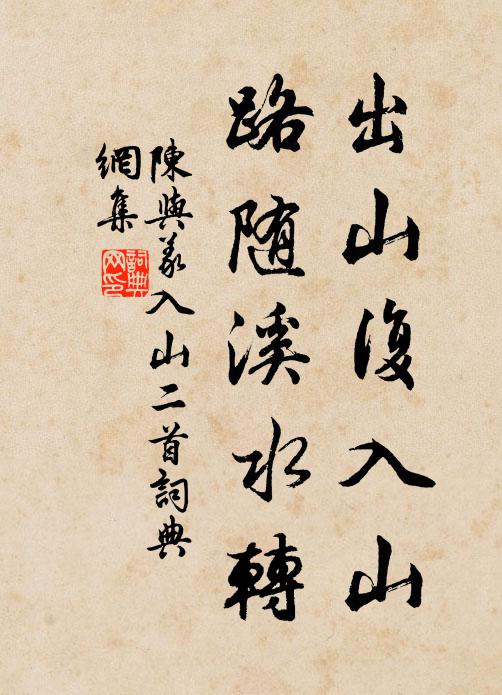 出山復入山
路随溪水轉
陳與義入山二首詞典
網集
詞典
网印